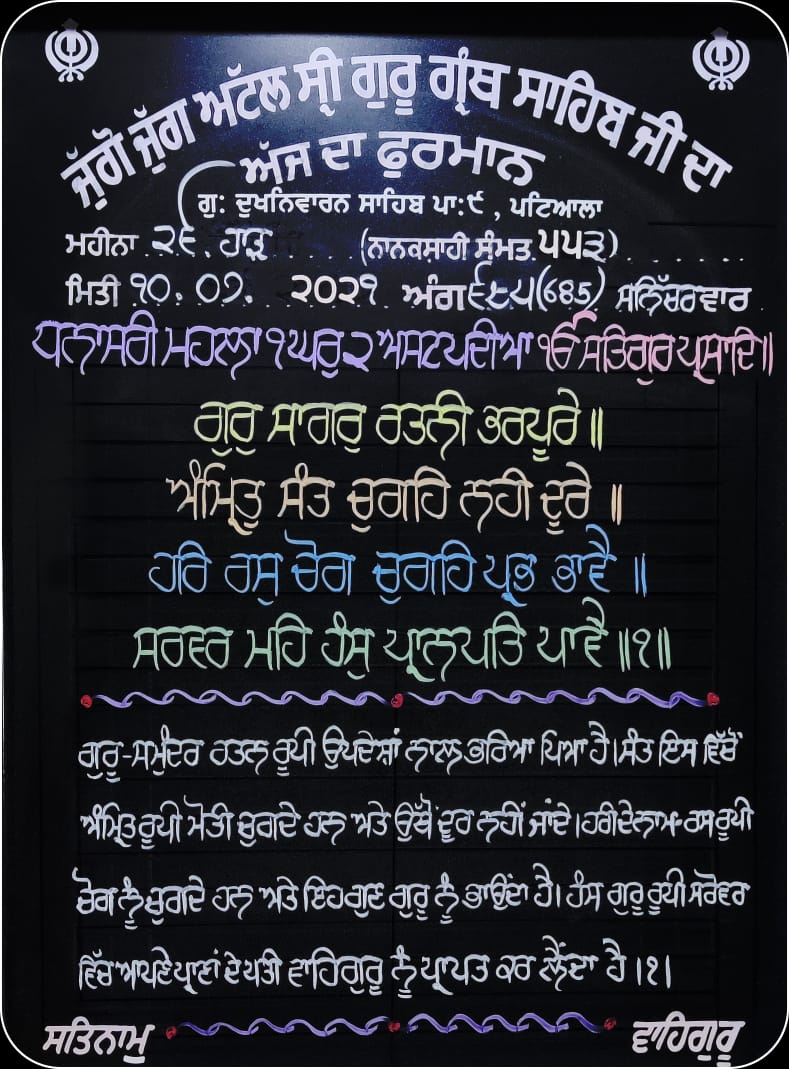 ਜੁੱਗੋ ਜੁੱਗ ਅਟੱਲ ਸ੍ਰੀ ਗੁਰੂ ਗ੍ਰੰਥ ਸਾਹਿਬ ਜੀ ਦਾ
ਅੱਜ ਦਾ ਫੁਰਮਾਨ
ਗੁ: ਦੁਖਨਿਵਾਰਨ ਸਾਹਿਬ ਪਾ:੯ , ਪਟਿਆਲਾ
ਮਹੀਨਾ ੨੬ ਹਾੜ (ਨਾਨਕਸ਼ਾਹੀ ਸੰਮਤ ੫੫੩)
ਮਿਤੀ ੧੦. ੦੭. ੨੦੨੧ ਅੰਗ ੬੮੫(685) ਸ਼ਨਿੱਚਰਵਾਰ
ਧਨਾਸਰੀ ਮਹਲਾ ੧ ਘਰੁ ੨ ਅਸਟਪਦੀਆ ੴ ਸਤਿਗੁਰ ਪ੍ਰਸਾਦਿ॥
ਗੁਰੁ ਸਾਗਰੁ ਰਤਨੀ ਭਰਪੂਰੇ ॥
ਅੰਮ੍ਰਿਤੁ ਸੰਤ ਚੁਗਹਿ ਨਹੀ ਦੂਰੇ ॥
ਹਰਿ ਰਸੁ ਚੋਗ ਚੁਗਹਿ ਪ੍ਰਭ ਭਾਵੈ ॥
ਸਰਵਰ ਮਹਿ ਹੰਸੁ ਪ੍ਰਾਨਪਤਿ ਪਾਵੈ ॥੧॥
ਗੁਰੂ-ਸਮੁੰਦਰ ਰਤਨ ਰੂਪੀ ਉਪਦੇਸ਼ਾਂ ਨਾਲ ਭਰਿਆ ਪਿਆ ਹੈ।ਸੰਤ ਇਸ ਵਿੱਚੋਂ
ਅੰਮ੍ਰਿਤ ਰੂਪੀ ਮੋਤੀ ਚੁਗਦੇ ਹਨ ਅਤੇ ਉਥੋਂ ਦੂਰ ਨਹੀਂ ਜਾਂਦੇ।ਹਰੀ ਦੇ ਨਾਮ-ਰਸ ਰੂਪੀ
ਚੋਗ ਨੂੰ ਚੁਗਦੇ ਹਨ ਅਤੇ ਇਹ ਗੁਣ ਗੁਰੂ ਨੂੰ ਭਾਉਂਦਾ ਹੈ। ਹੰਸ ਗੁਰੂ ਰੂਪੀ ਸਰੋਵਰ
ਵਿੱਚ ਆਪਣੇ ਪ੍ਰਾਣਾਂ ਦੇ ਪਤੀ ਵਾਹਿਗੁਰੂ ਨੂੰ ਪ੍ਰਾਪਤ ਕਰ ਲੈਂਦਾ ਹੈ।੧।
ਸਤਿਨਾਮੁ ਵਾਹਿਗੁਰੂ